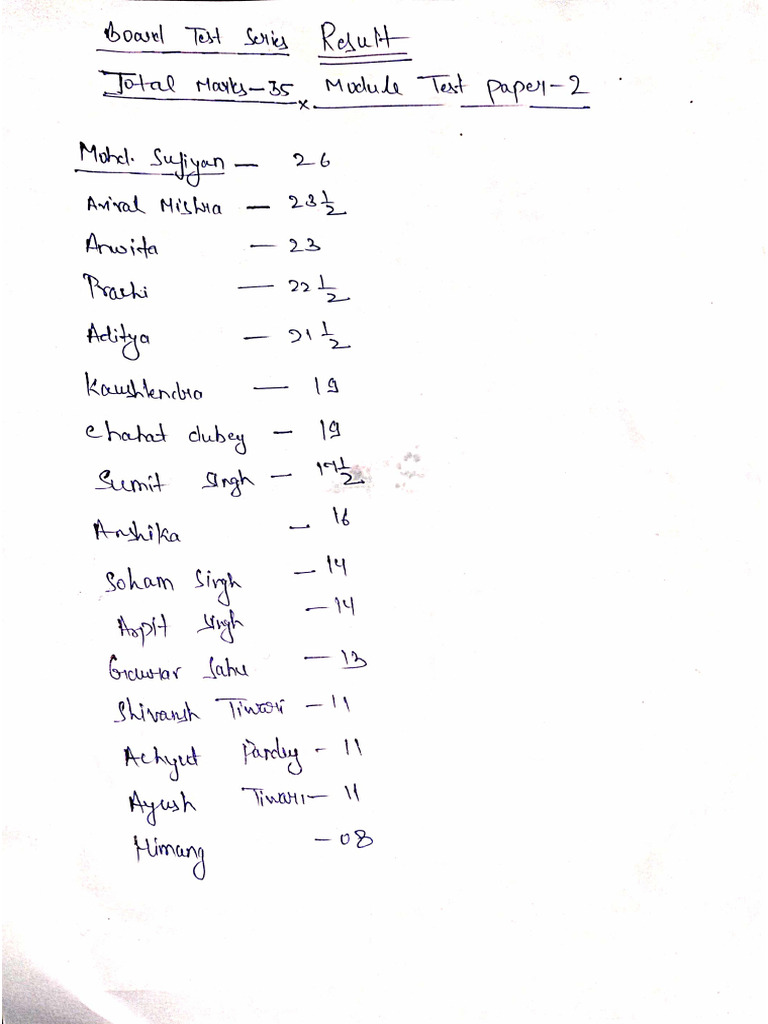 Board Test Series Result
Total Marks-35 x Module Test paper-2
Mohd. Sufiyan — 26
Aviral Mishra — 23 1/2
Anwita — 23
Prachi — 22 1/2
Aditya — 21 1/2
Kaushlendra — 19
Chahat dubey — 19
Sumit Singh — 17 1/2
Anshika — 16
Soham Singh — 14
Arpit Singh — 14
Gaurav Sahu — 13
Shivansh Tiwari — 11
Achyut Pandey - 11
Ayush Tiwari — 11
Himang — 08